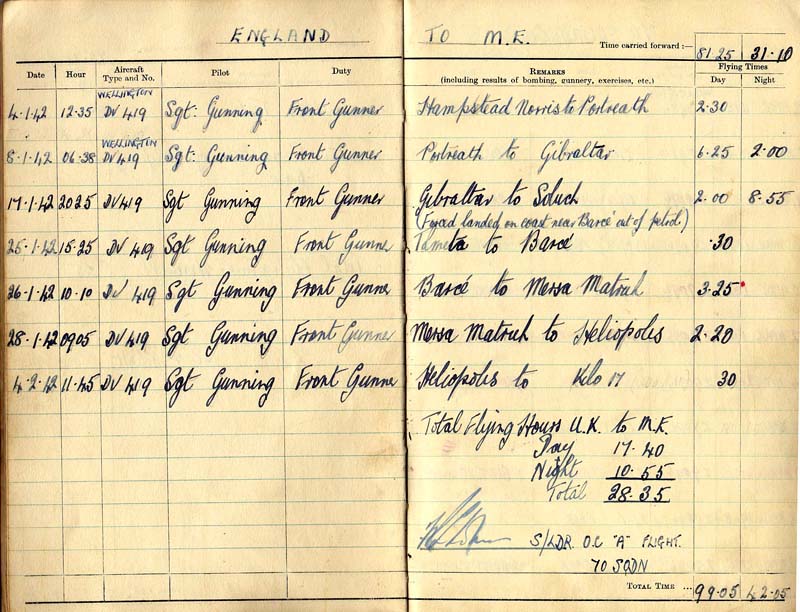 ENGLAND TO M.E.
Time carried forward :— 81.25 31.10
Date Hour Aircraft Type and No. Pilot Duty REMARKS (including results of bombing, gunnery, exercises, etc.) Flying Times Day Night
WELLINGTON
4.1.42 12.35 DV 419 Sgt. Gunning Front Gunner Hampstead Norris to Portreath 2.30
WELLINGTON
8.1.42 06.38 DV 419 Sgt. Gunning Front Gunner Portreath to Gibraltar 6.25 2.00
17.1.42 2025 DV 419 Sgt Gunning Front Gunner Gibraltar to Soluch 2.00 8.55
(Forced landed on coast near Barcé out of petrol.)
25.1.42 15.25 DV 419 Sgt Gunning Front Gunner Tameta to Barcé .30
26.1.42 10.10 DV 419 Sgt Gunning Front Gunner Barcé to Mersa Matruh 3.25
28.1.42 0905 DV 419 Sgt Gunning Front Gunner Mersa Matruh to Heliopoles 2.20
4.2.42 11.45 DV 419 Sgt Gunning Front Gunner Heliopolis to Kilo 17 30
Total Flying Hours U.K. to M.E.
Day 17.40
Night 10.55
Total 28.35
S/LDR. O.C "A" FLIGHT.
70 SQDN
TOTAL TIME ... 99.05 42.05